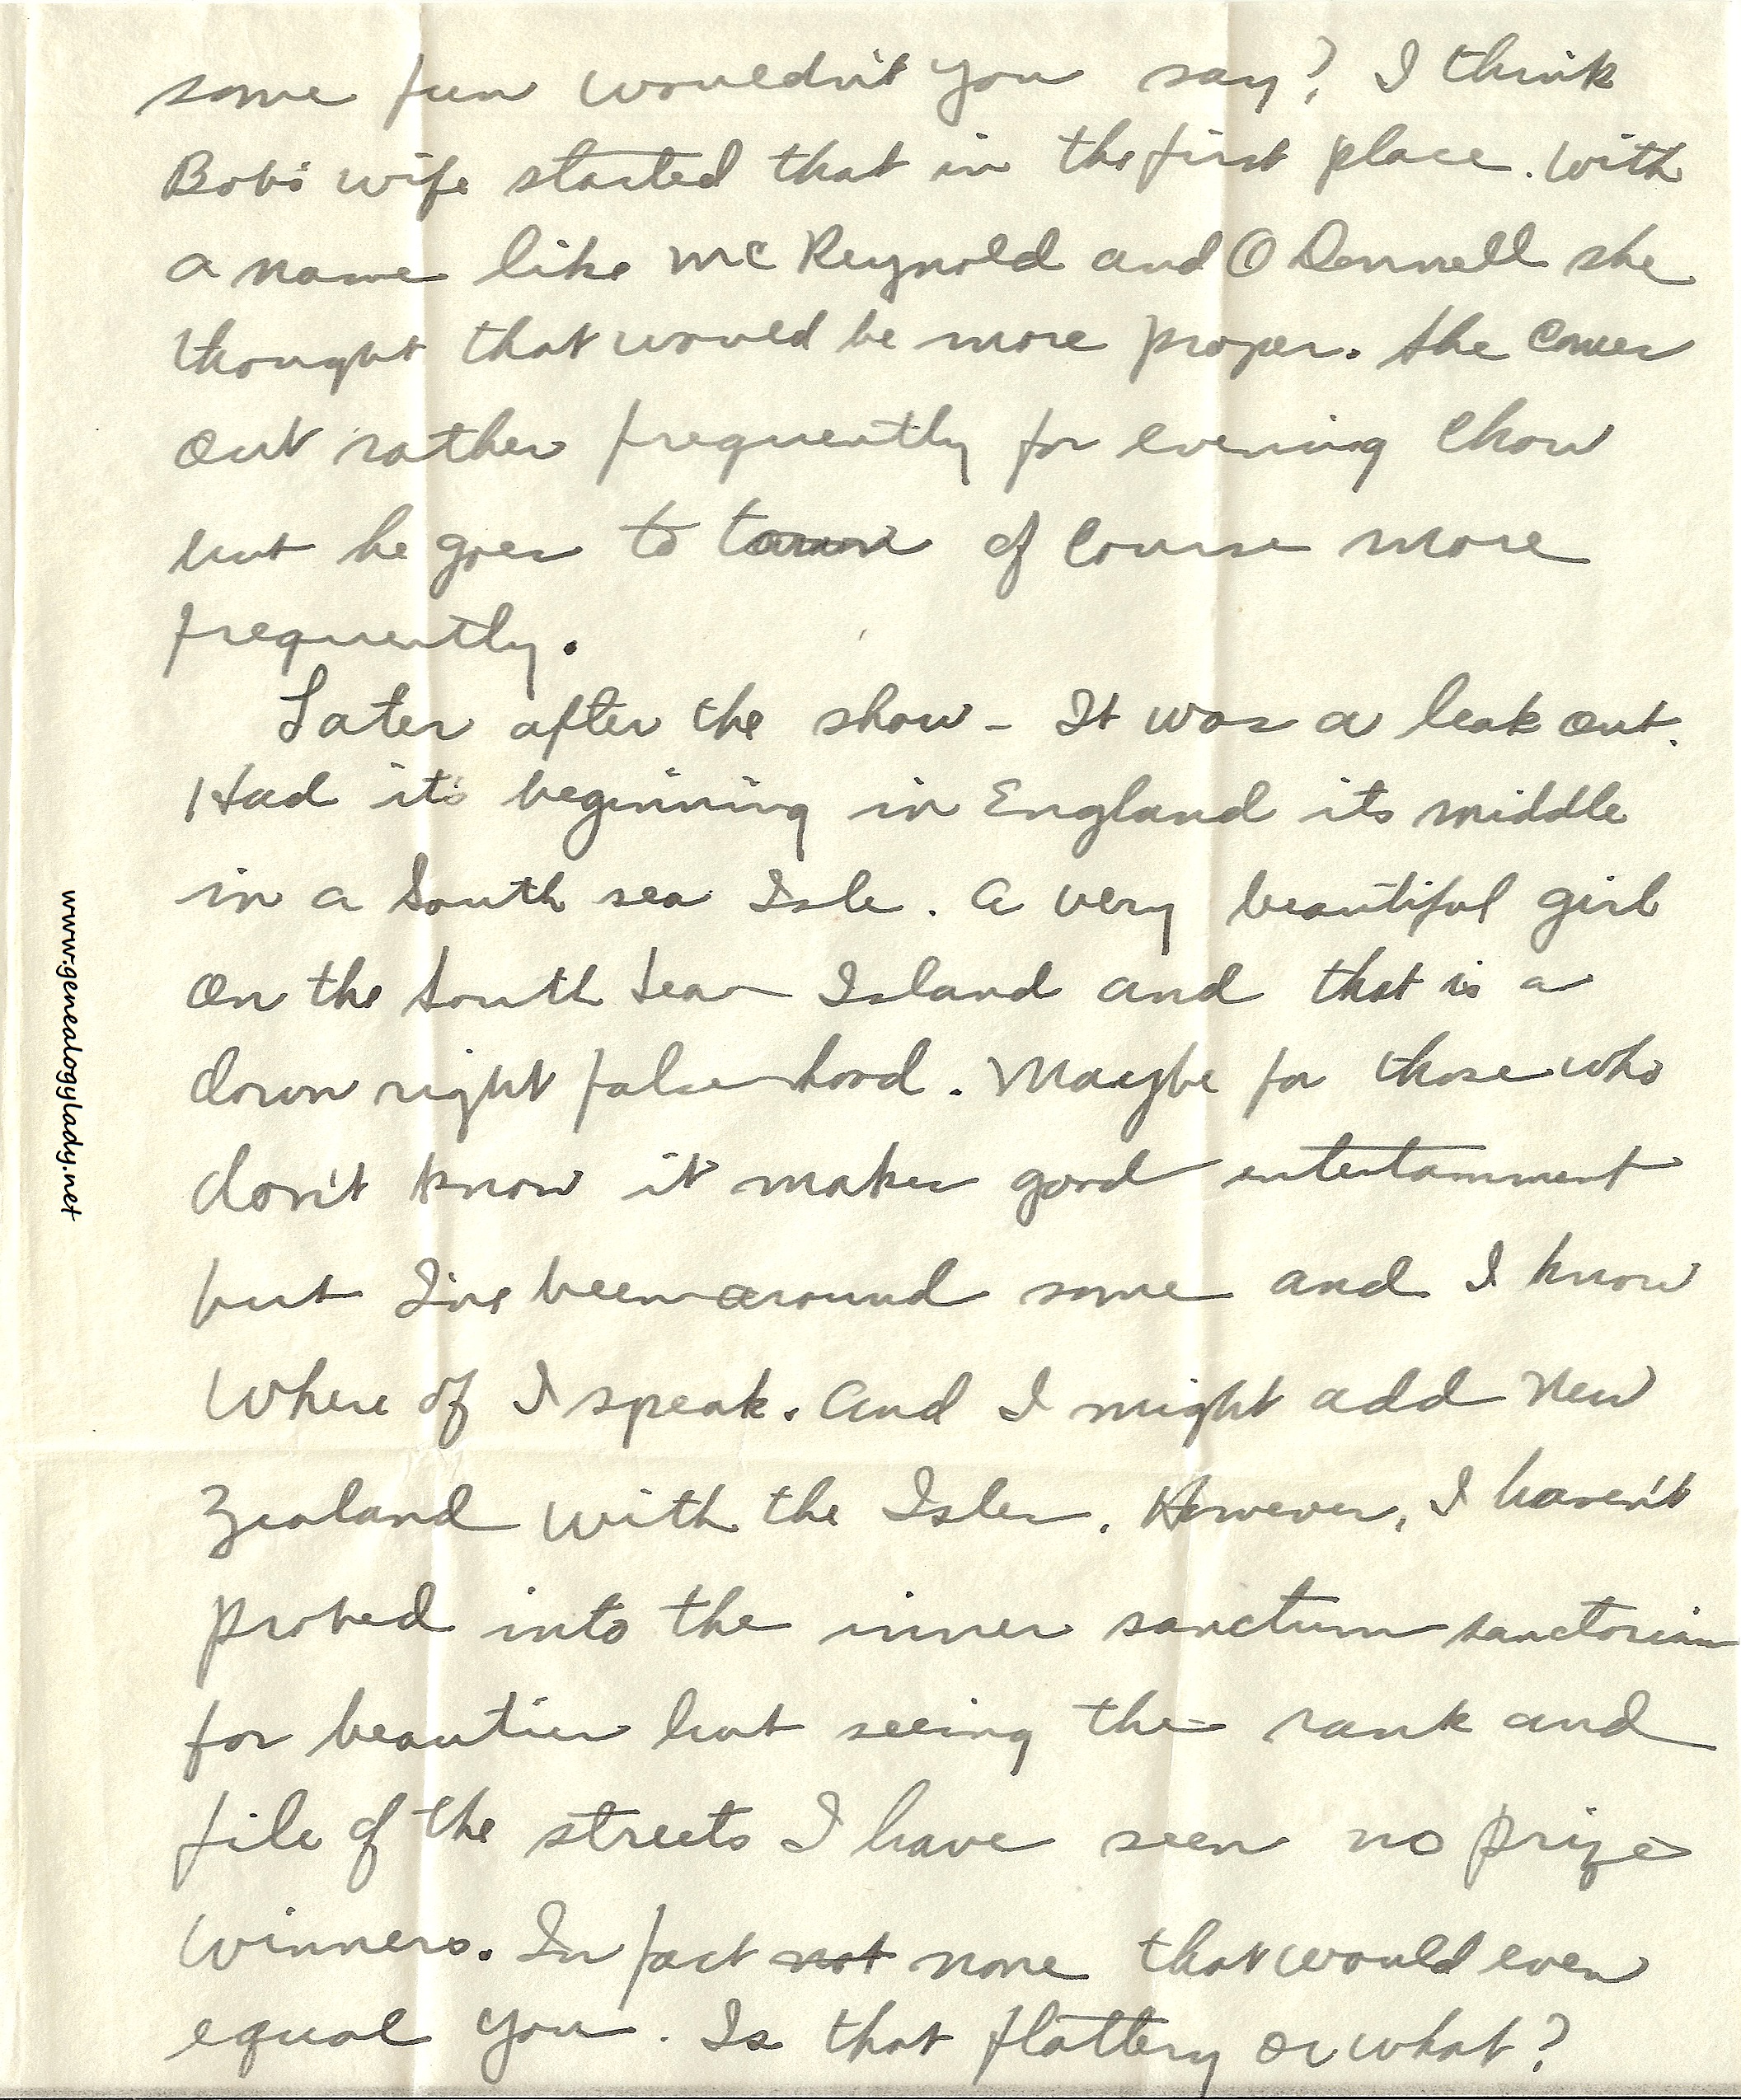 some fun wouldn't you say? I think
Bob's wife started that in the first place. With
a name like McReynold and O Donnell she
thought that would be more proper. She comes
out rather frequently for evening chow
but he goes to town of course more
frequently.
Later after the show - It was a leak out.
Had it's beginning in England its middle
in a South sea Isle. A very beautiful girl
on the South Sea Island and that is a
down right falsehood. Maybe for those who
don't know it makes good entertainment
but I've been around some and I know
where of I speak. And I might add New
Zealand with the Isles. However, I haven't
probed into the inner sanctum sanctorium
for beauties but seeing the rank and
file of the streets I have seen no prize
winners. In fact not none that would even
equal you. Is that flattery or what?
www.genealogylady.net